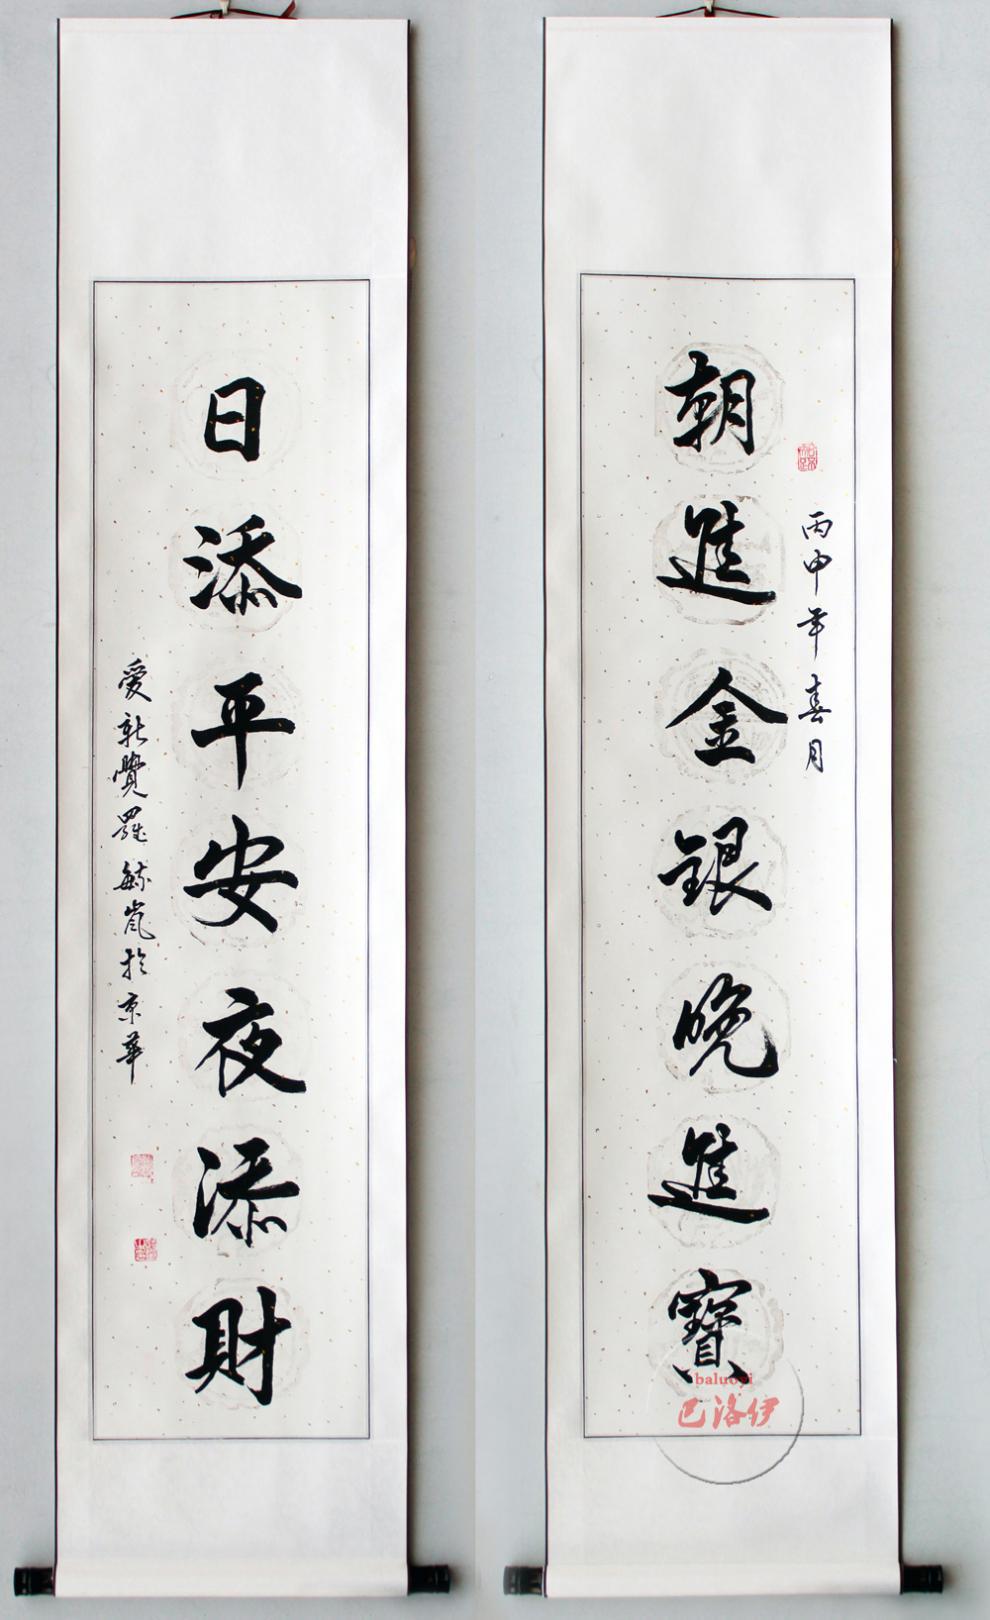 丙申年春月
朝進金銀晚進寶
日添平安夜添財
愛新覺羅毓嵐於京華
baluoyi
巴洛伊